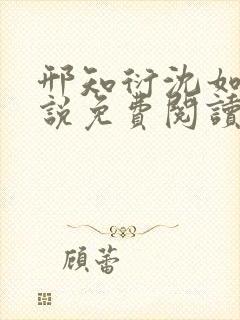 邢知衍沈如
說免費閱讀
顾蕾